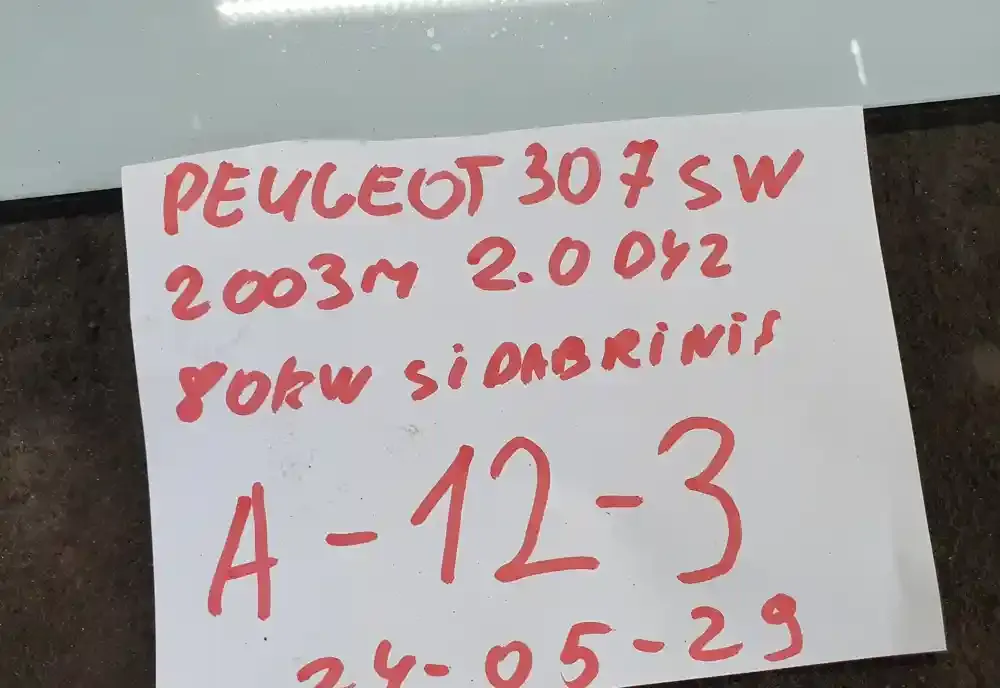 PEUGEOT 307 SW
2003m 2.0 DYZ
80kW SiDABRiNiS
A-12-3
24-05-29